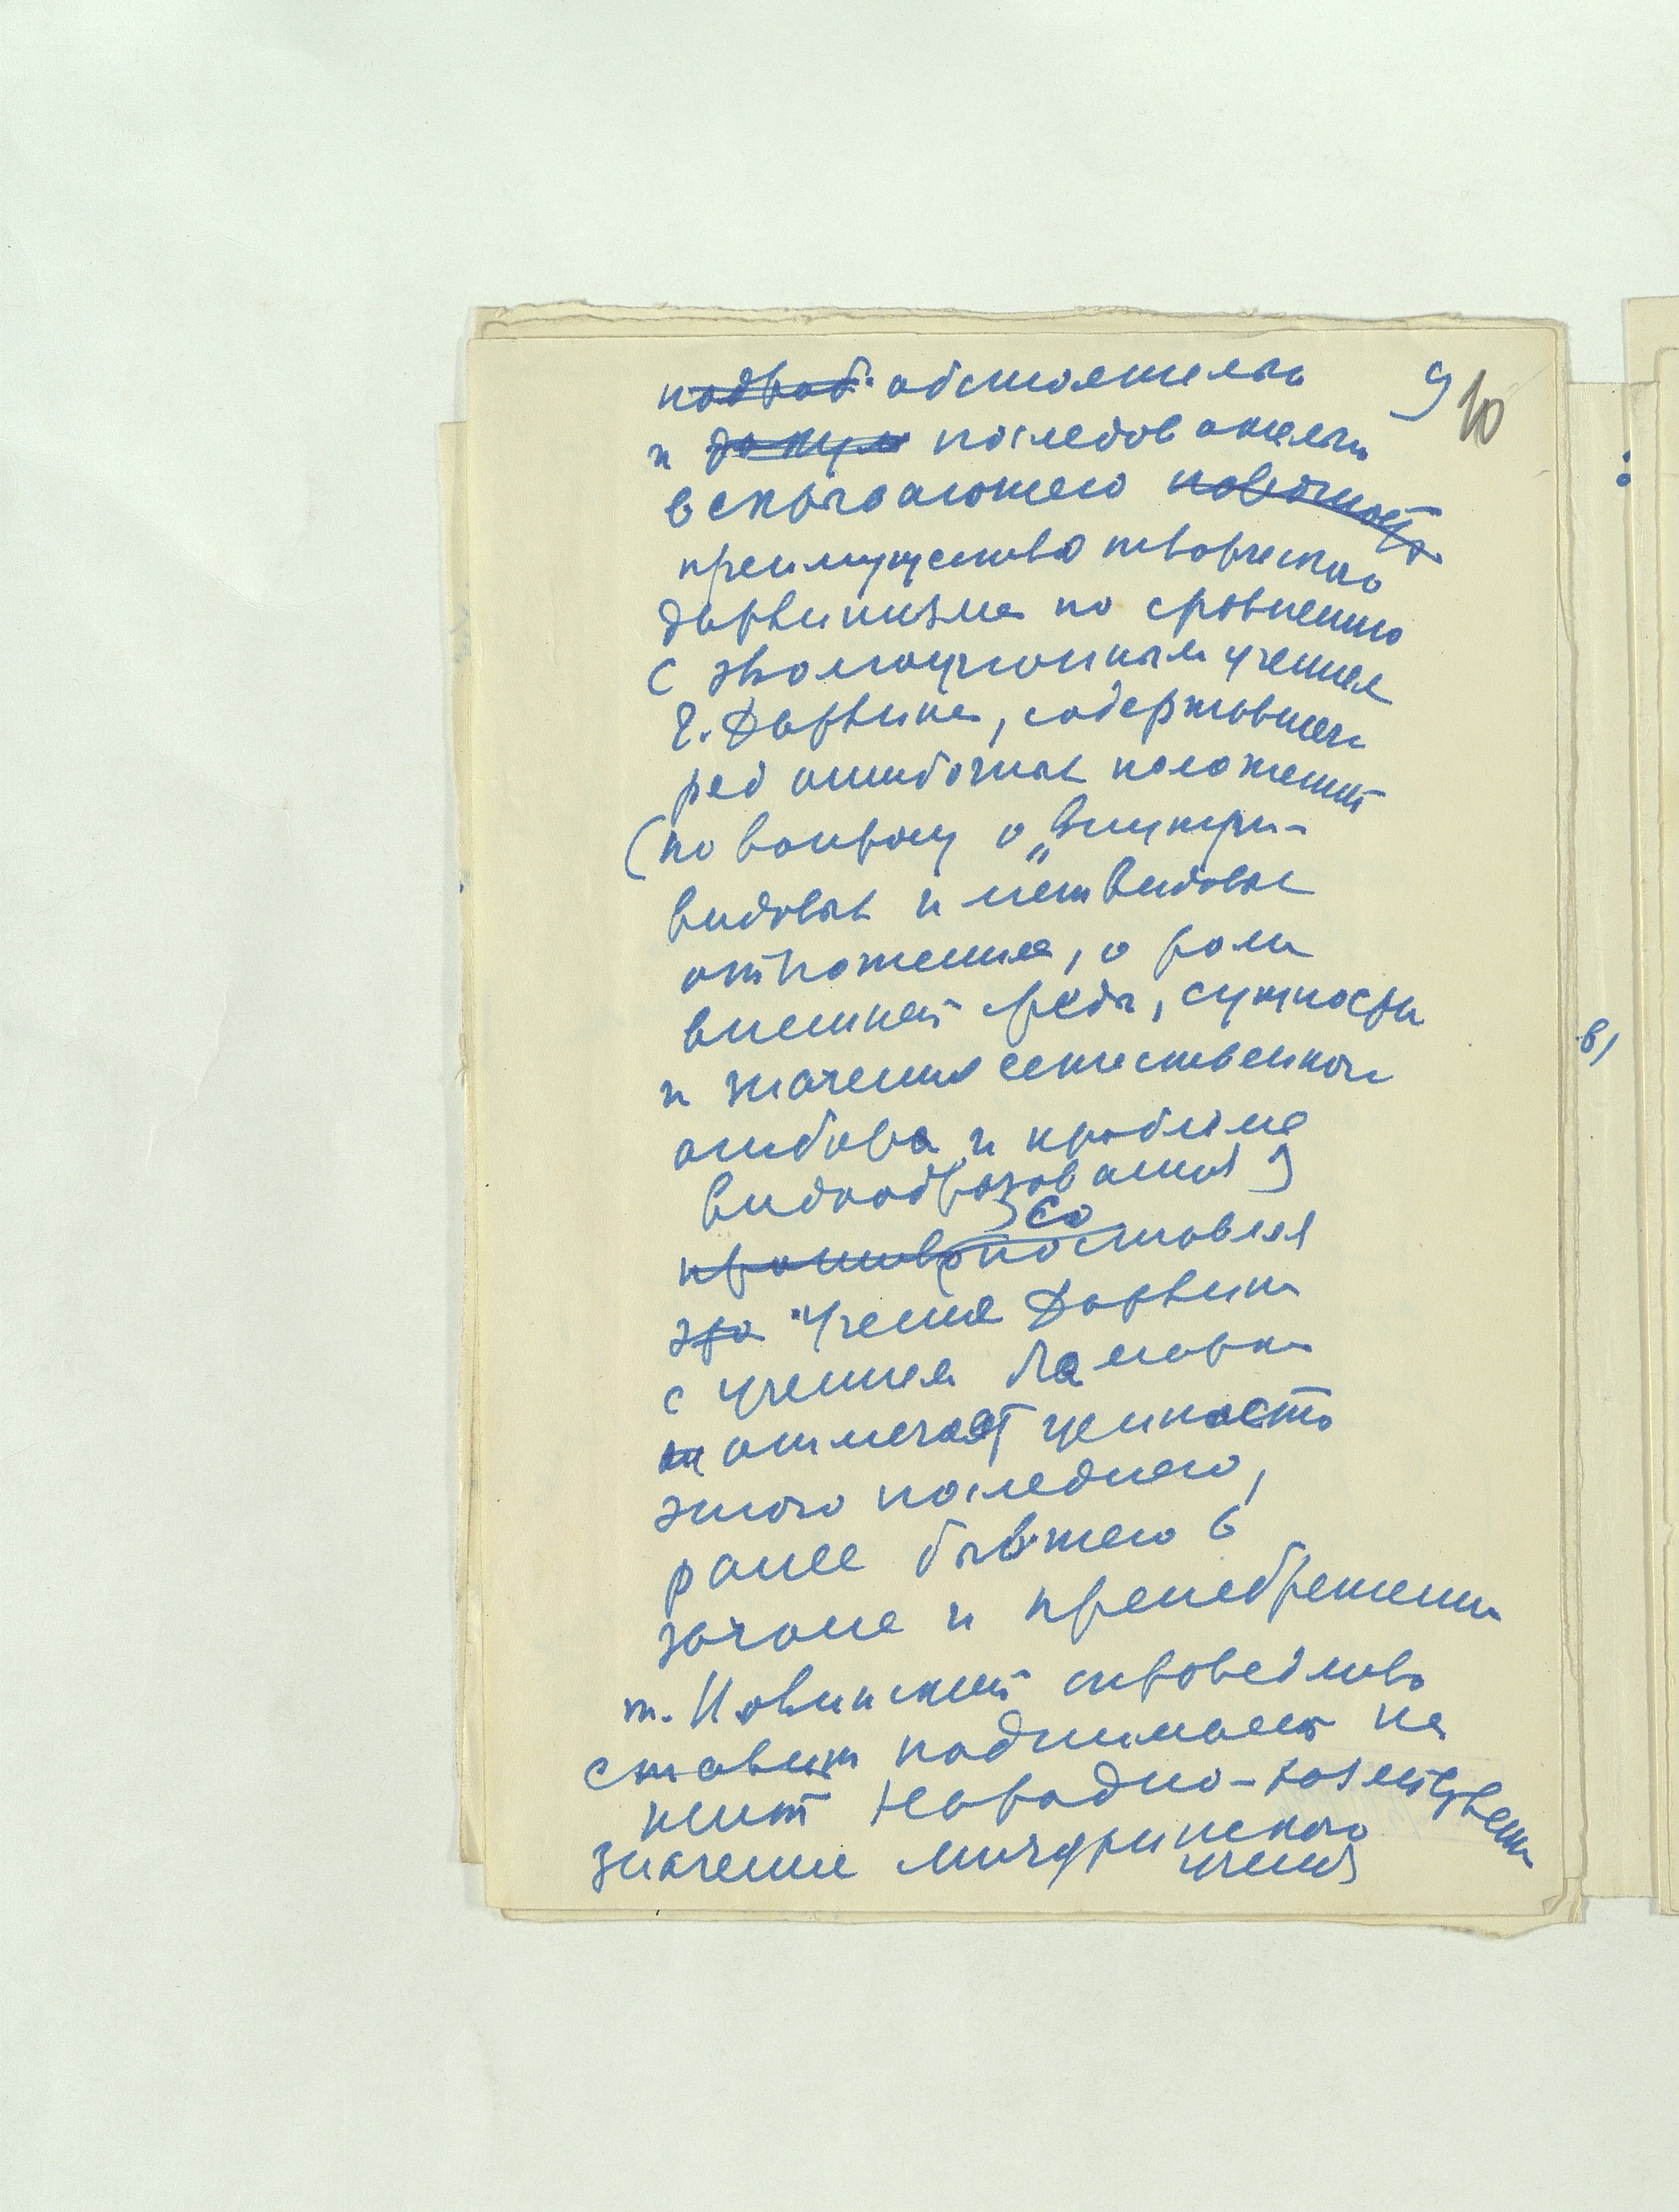 9 10
обстоятельно
и последовательно
вскрывающего
преимущество творческого
дарвинизма по сравнению
с эволюционным учением
Ч. Дарвина, содержавшем
ряд ошибочных положений
(по вопросу о „внутри-
видовых и межвидовых
отношениях, о роли
внешней среды, сущности
и значения естественного
отбора и проблеме
видообразования)
сопоставляя
это учение Дарвина
с учением Ламарка
отмечает ценность
этого последнего,
ранее бывшего в
загоне и пренебрежении
т. справедливо
ставит поднимает на
щит народно-хозяйственн
значение мичуринского
учения
в)